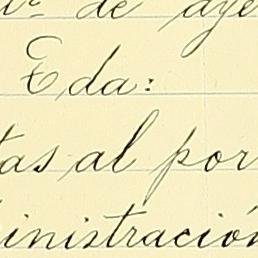 de aye
Eda:
tas al por
inistración